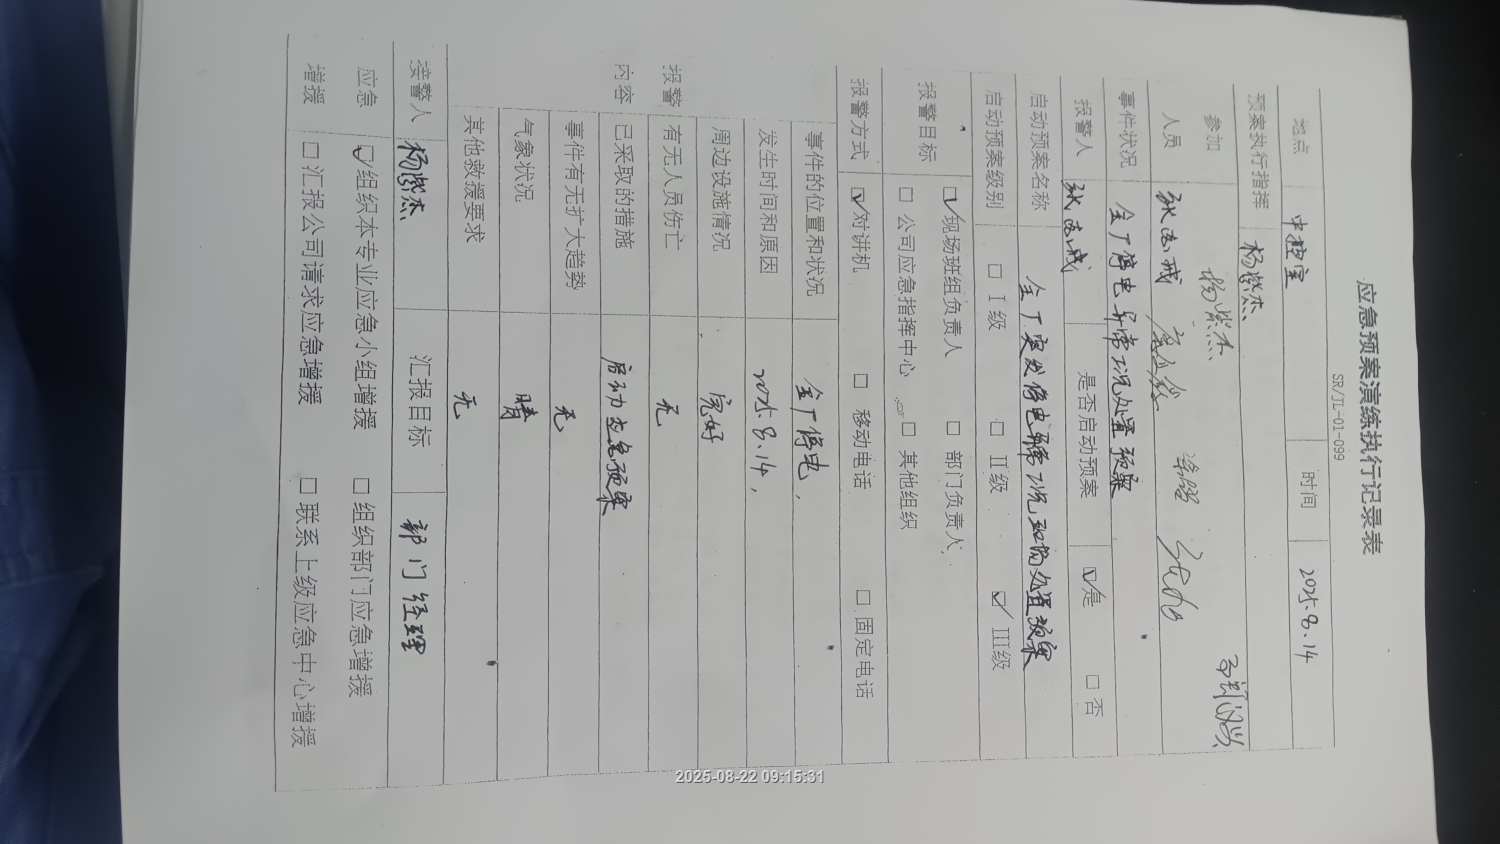 应急预案演练执行记录表
SR/JL-01-099
地点 中控室 时间 2025.8.14
预案执行指挥 杨紫杰
参加 杨紫杰
人员
事件状况 全厂停电异常情况处置预案
报警人 是否启动预案 ☑是 □否
启动预案名称 全厂突发停电异常情况现场处置预案
启动预案级别 □ I级 □ II级 ☑ III级
报警目标 ☑现场班组负责人 □ 部门负责人
□ 公司应急指挥中心 □ 其他组织
报警方式 ☑对讲机 □ 移动电话 □ 固定电话
报警
内容
事件的位置和状况 全厂停电,
发生时间和原因 2025.8.14,
周边设施情况 完好
有无人员伤亡 无
已采取的措施 启动应急预案
事件有无扩大趋势 无
气象状况 晴
其他救援要求 无
接警人 杨紫杰 汇报目标 部门经理
应急 ☑组织本专业应急小组增援 □ 组织部门应急增援
增援 □汇报公司请求应急增援 □ 联系上级应急中心增援
2025-08-22 09:15:31